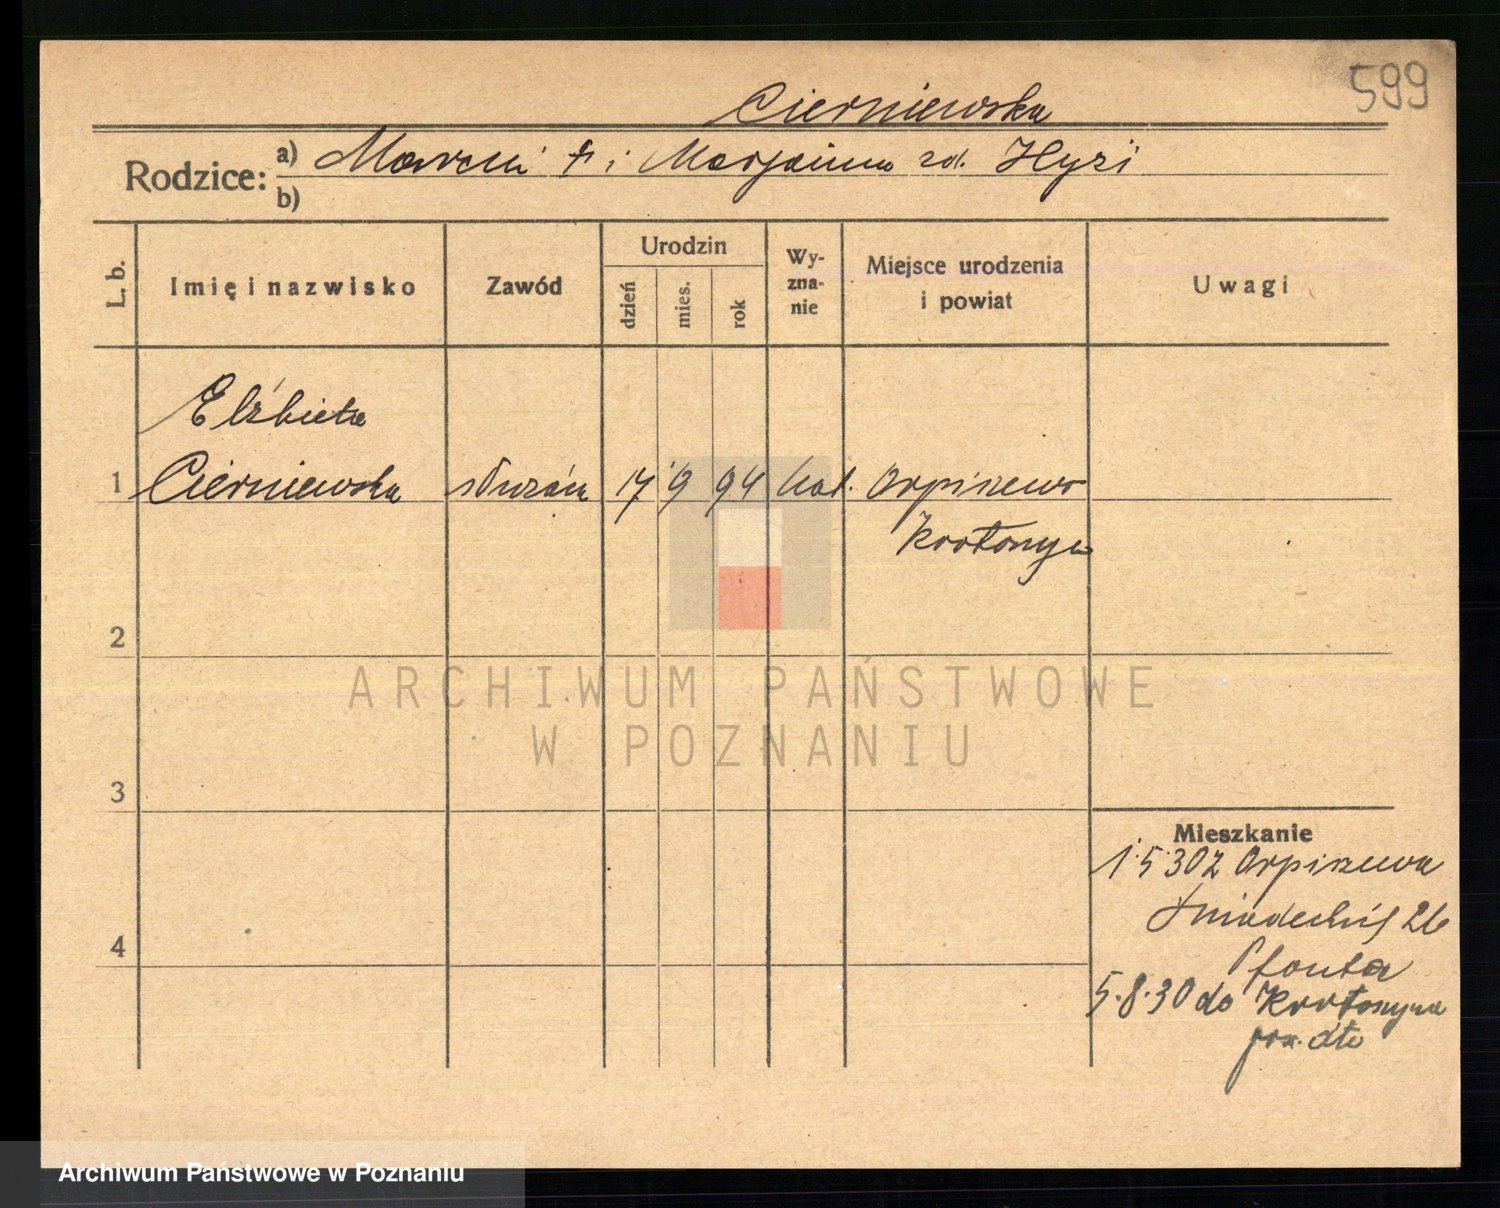 599
Cierniewska
Rodzice: a) Marcin † i Marjanna zd. Hyzi
b)
L. b. Imię i nazwisko Zawód Urodzin dzień mies. rok Wy-zna-nie Miejsce urodzenia i powiat Uwagi
Elżbieta
1 Cierniewska służąca 17 9 94 kat. Orpiszewo
Krotoszyn
2
ARCHIWUM PAŃSTWOWE
W POZNANIU
3
Mieszkanie
1.5.30 z Orpiszewa
Śniadeckich 26
4
5.8.30 do Krotoszyna
dto
Archiwum Państwowe w Poznaniu